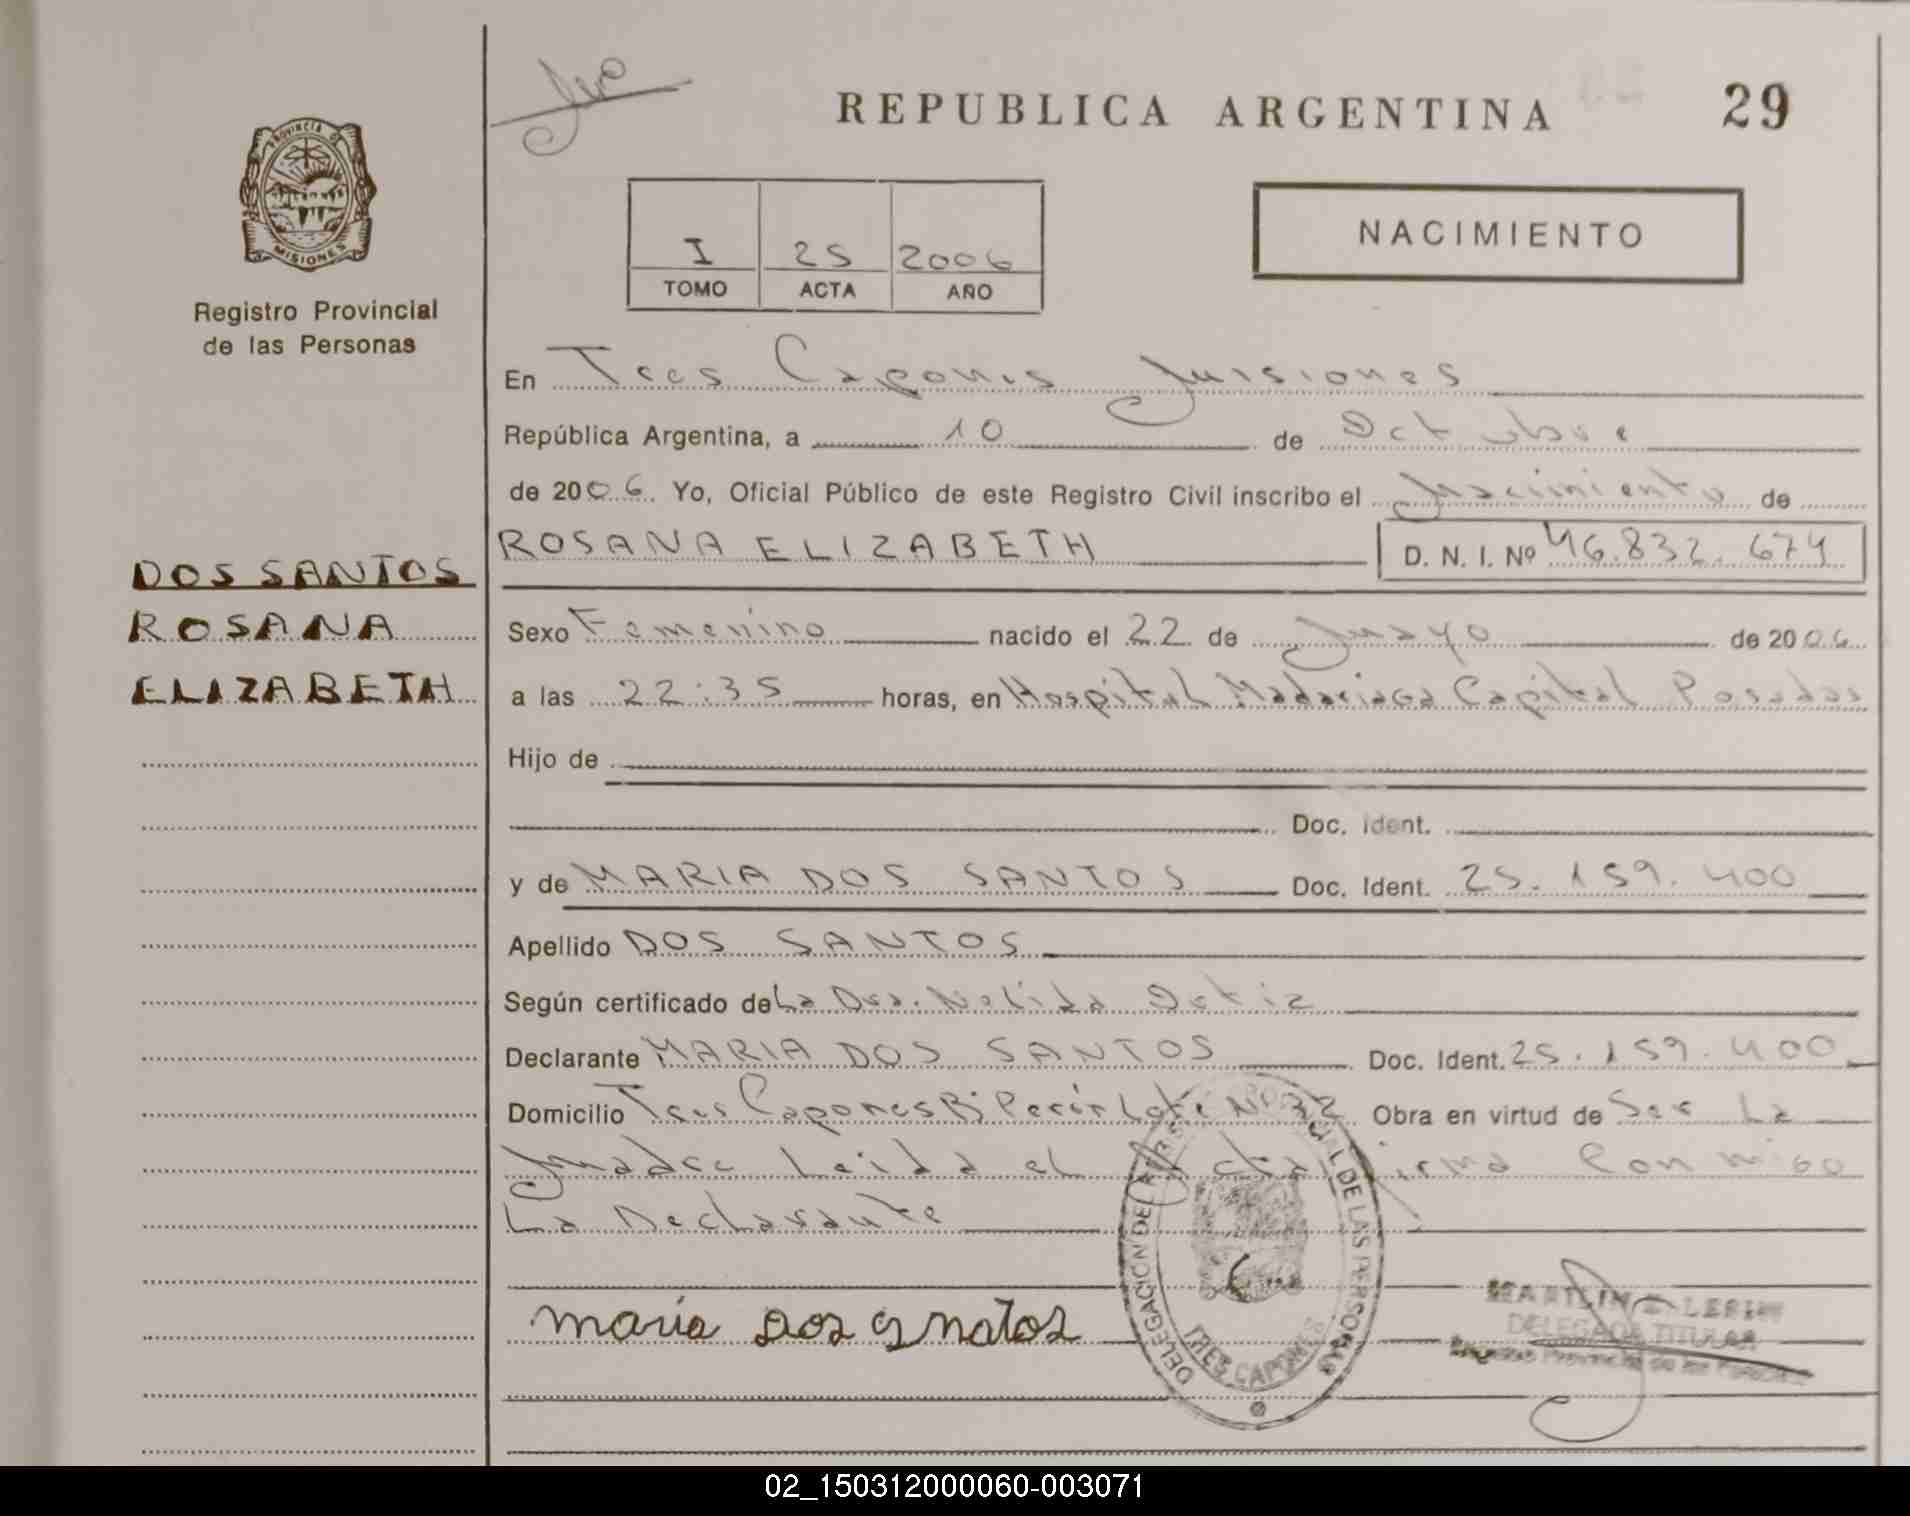 REPUBLICA ARGENTINA
29
PROVINCIA DE
MISIONES
Registro Provincial
de las Personas
I 25 2006
TOMO ACTA AÑO
NACIMIENTO
En Tres Capones Misiones
República Argentina, a 10 de Octubre
de 2006. Yo, Oficial Público de este Registro Civil inscribo el Nacimiento de
ROSANA ELIZABETH D. N. I. Nº 46.832.674
DOS SANTOS
ROSANA
ELIZABETH
Sexo Femenino nacido el 22 de Mayo de 2006
a las 22:35 horas, en Hospital Madariaga Capital Posadas
Hijo de
Doc. Ident.
y de MARIA DOS SANTOS Doc. Ident. 25.159.400
Apellido DOS SANTOS
Según certificado de La Dra. Nelida Ortiz
Declarante MARIA DOS SANTOS Doc. Ident. 25.159.400
Domicilio Tres Capones Bº Perón Lote Nº 32 Obra en virtud de Ser La
Madre Leida el Acta Firma Conmigo
La Declarante
maria Dos
DELEGACIÓN DEL DE LAS PERSONAS
TRES CAPONES
DELEGADO TITULAR
Registro Provincial de las Personas
02_150312000060-003071